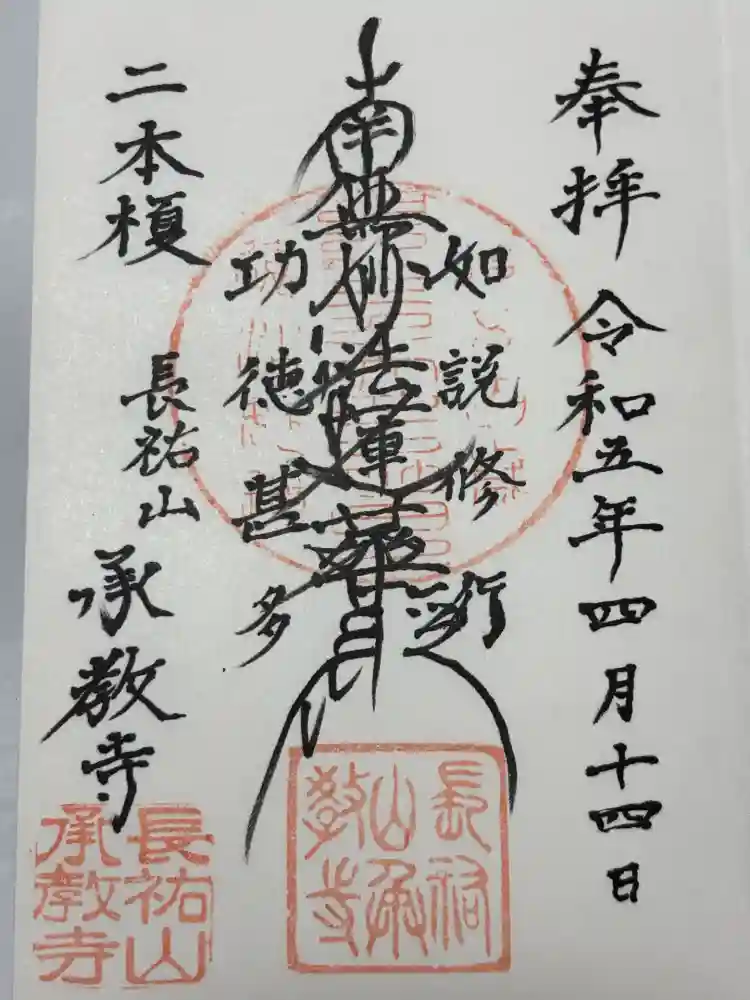 奉拝 令和五年四月十四日
如説修行
南無妙法蓮華経
功徳甚多
二本榎
長祐山
承教寺
長祐山承教寺
長祐山
承教寺